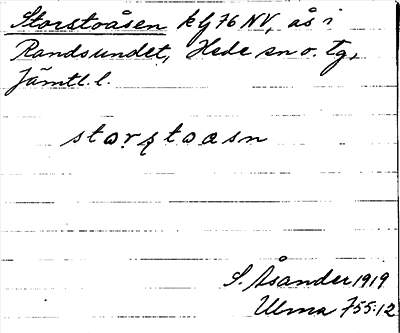 Storstoåsen kg 76 NV, ås i
Randsundet, Hede sn o. tg,
Jämtl. l.
storstoasn
S. Åsander 1919
Ulma 755:12